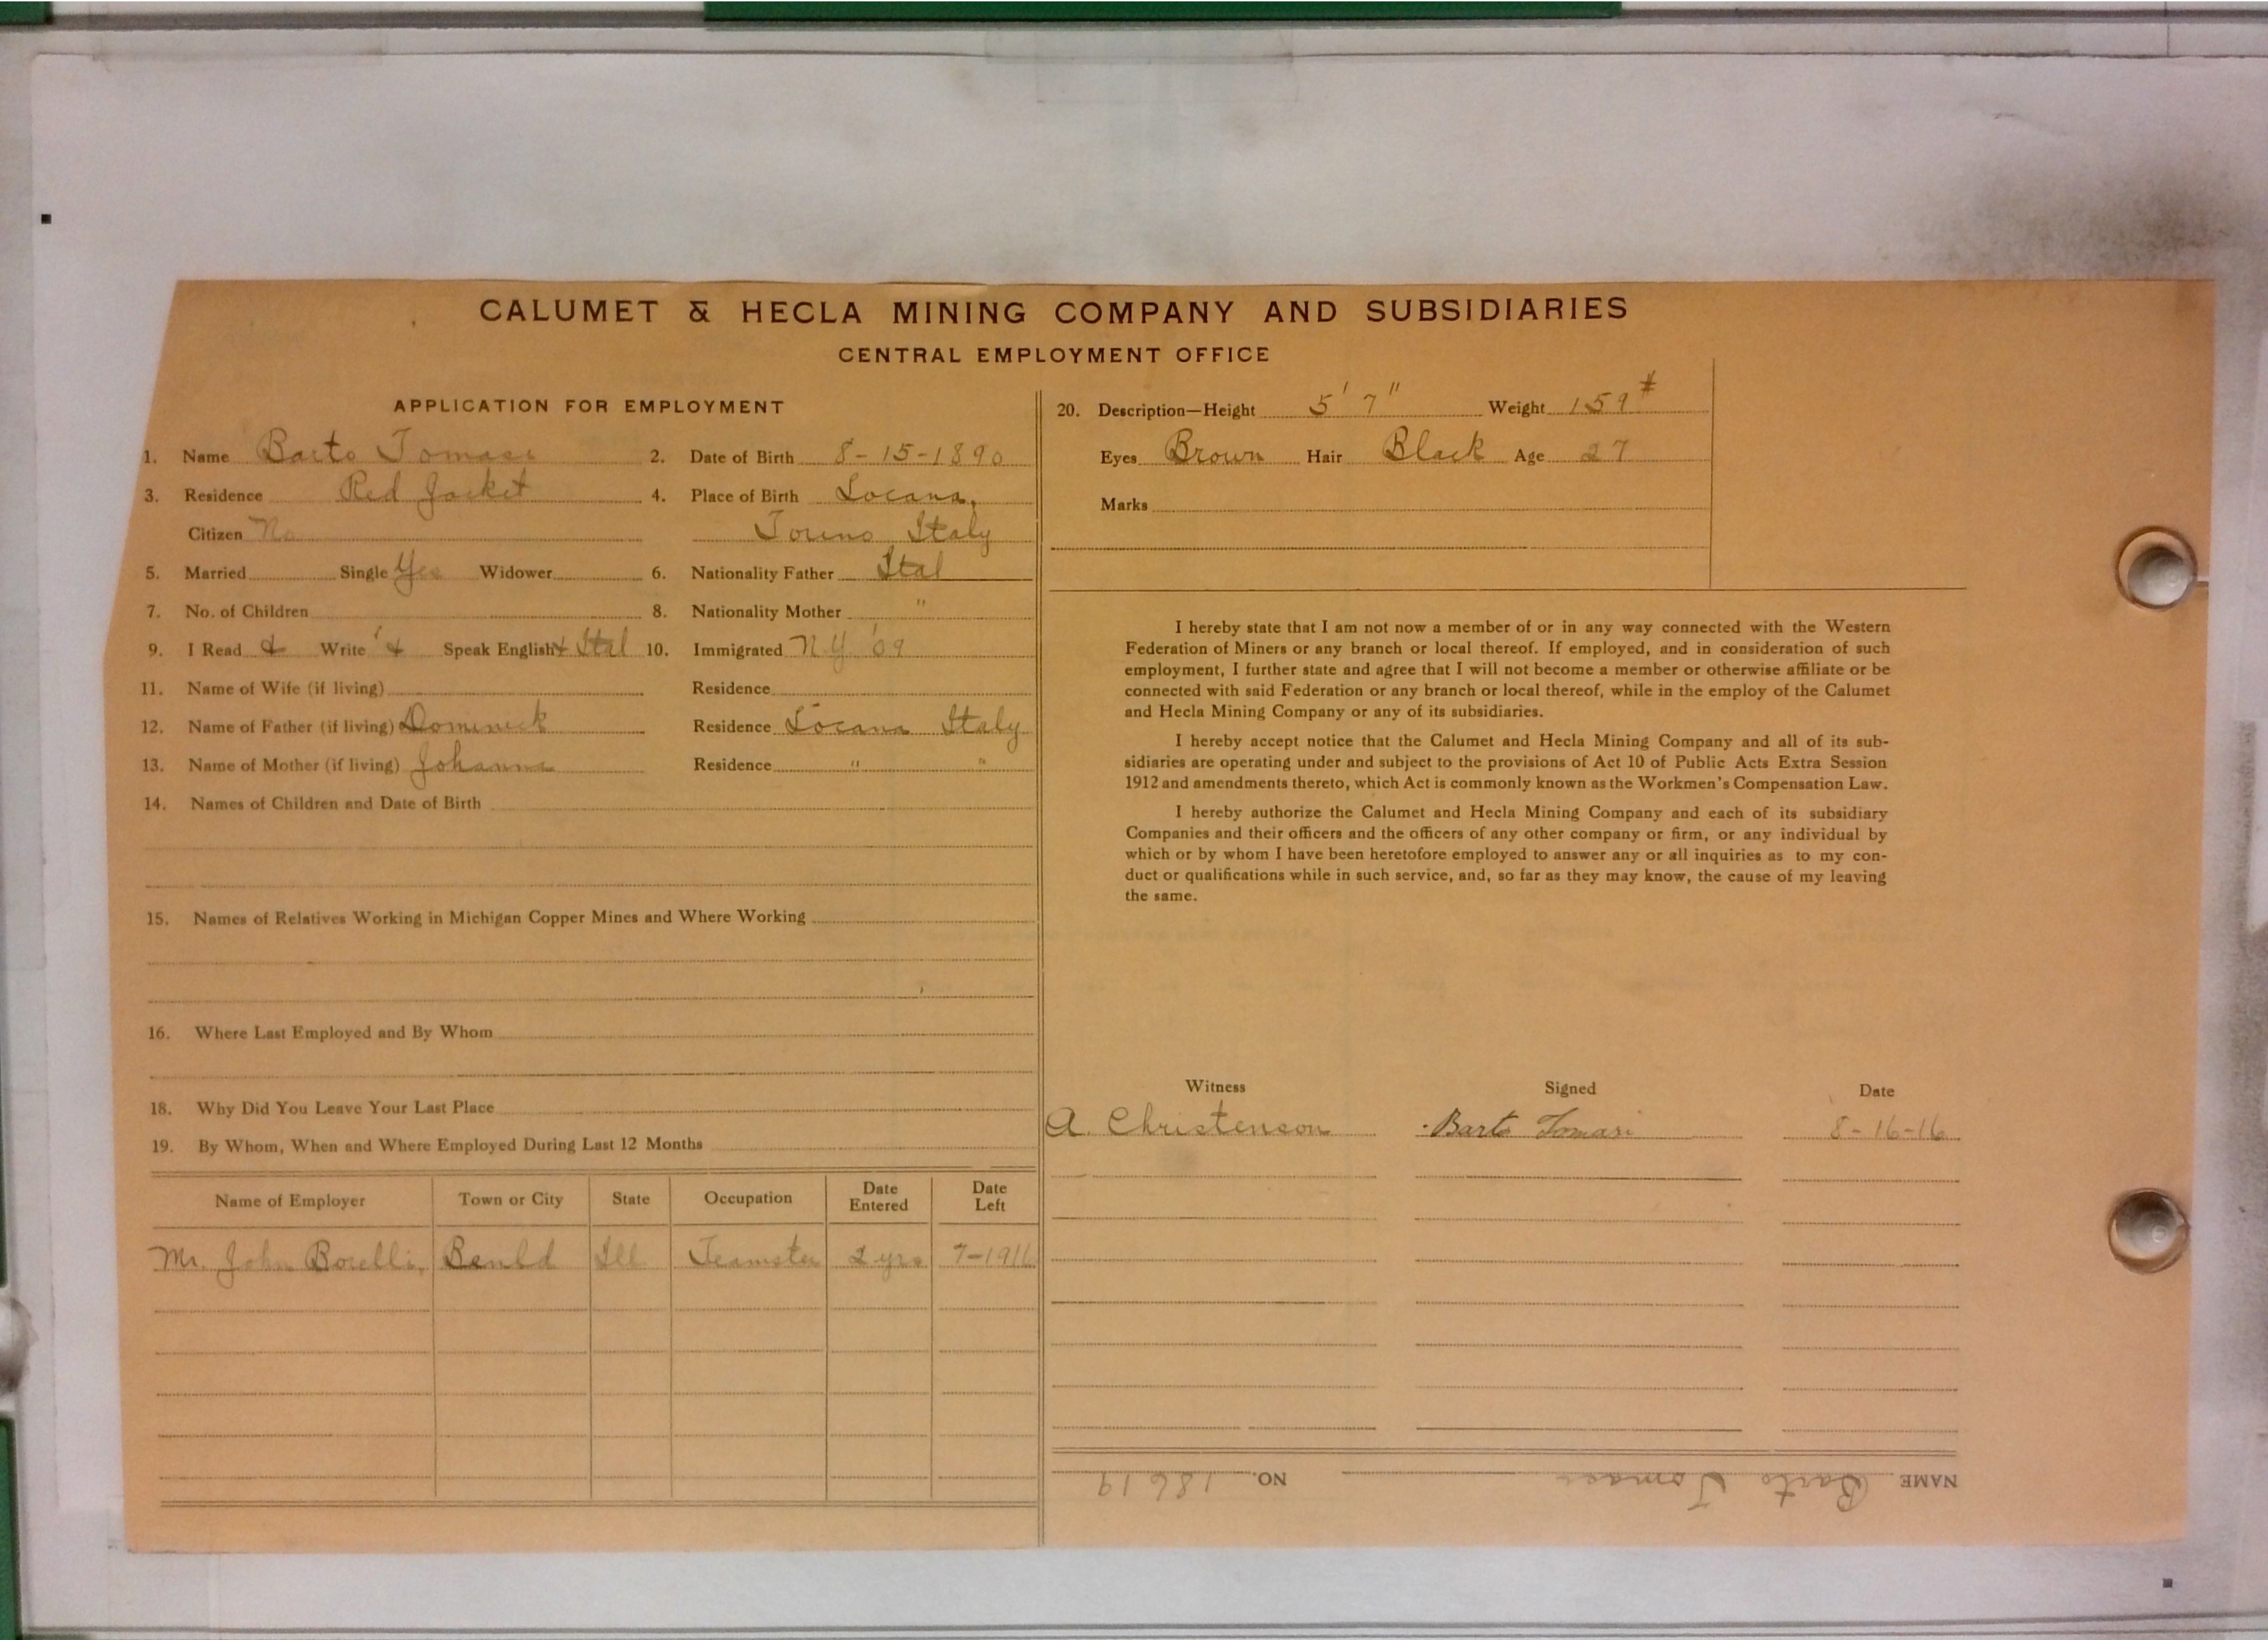 CALUMET & HECLA MINING COMPANY AND SUBSIDIARIES
CENTRAL EMPLOYMENT OFFICE
APPLICATION FOR EMPLOYMENT
1. Name Barto Tomasi 2. Date of Birth 8-15-1890
3. Residence Red Jacket 4. Place of Birth Locana,
Citizen No Torino Italy
5. Married Single Yes Widower 6. Nationality Father Ital
7. No. of Children 8. Nationality Mother "
9. I Read & Write & Speak English & Ital 10. Immigrated N.Y. '09
11. Name of Wife (if living) Residence
12. Name of Father (if living) Dominick Residence Locana Italy
13. Name of Mother (if living) Johanna Residence " "
14. Names of Children and Date of Birth
15. Names of Relatives Working in Michigan Copper Mines and Where Working
16. Where Last Employed and By Whom
18. Why Did You Leave Your Last Place
19. By Whom, When and Where Employed During Last 12 Months
Name of Employer Town or City State Occupation Date Entered Date Left
Mr. John Borelli, Benld Ill. Teamster 2 yrs 7-1916
20. Description—Height 5' 7" Weight 159#
Eyes Brown Hair Black Age 27
Marks
I hereby state that I am not now a member of or in any way connected with the Western
Federation of Miners or any branch or local thereof. If employed, and in consideration of such
employment, I further state and agree that I will not become a member or otherwise affiliate or be
connected with said Federation or any branch or local thereof, while in the employ of the Calumet
and Hecla Mining Company or any of its subsidiaries.
I hereby accept notice that the Calumet and Hecla Mining Company and all of its sub-
sidiaries are operating under and subject to the provisions of Act 10 of Public Acts Extra Session
1912 and amendments thereto, which Act is commonly known as the Workmen's Compensation Law.
I hereby authorize the Calumet and Hecla Mining Company and each of its subsidiary
Companies and their officers and the officers of any other company or firm, or any individual by
which or by whom I have been heretofore employed to answer any or all inquiries as to my con-
duct or qualifications while in such service, and, so far as they may know, the cause of my leaving
the same.
Witness Signed Date
A. Christenson Barto Tomasi 8-16-16
NAME Barto Tomasi NO. 18619